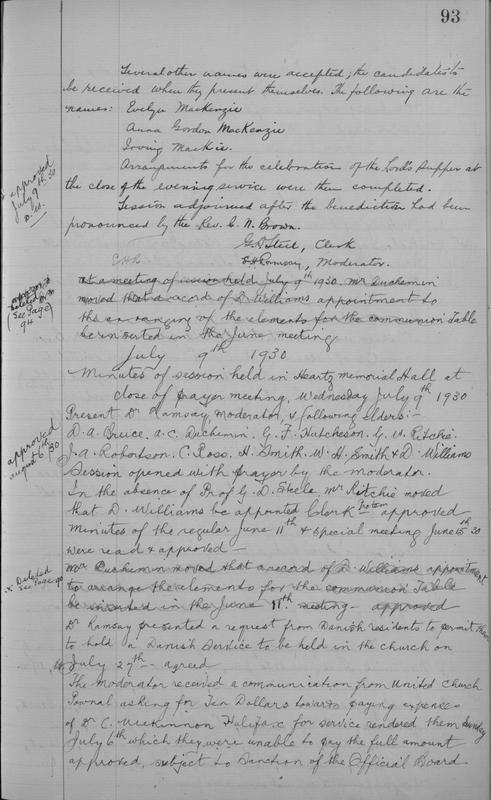 93
Several other names were accepted; the candidates to
be received when they present themselves. The following are the
names: Evelyn MacKenzie
Anna Gordon MacKenzie
Irving MacKie.
Arrangements for the celebration of the Lord's Supper at
the close of the evening service were then completed.
Session adjourned after the benediction had been
pronounced by the Rev. C. N. Brown.
G D Steel, Clerk
Ramsay, Moderator.
approved
July 9th 30
D. W.
at a meeting of session held July 9th 1930 Mr Duchemin
moved that a record of D. Williams appointment to
the arranging of the elements for the communion Table
be inserted in the June meeting
deleted
(See Page
94)
July 9th 1930
Minutes of session held in Heartz memorial Hall at
close of prayer meeting, Wednesday July 9th 1930
Present Dr Ramsay moderator, & following elders:-
D. A. Bruce. A. C. Duchemin, G. F. Hutcheson, G. W. Ritchie.
J. A. Robertson, C. Ross, H. Smith. W. H. Smith & D. Williams
Session opened with prayer by the moderator.
In the absence of Prof G. D. Steele, Mr Ritchie moved
that D. Williams be appointed Clerk Protem approved
Minutes of the regular June 11th & special meeting June 15th 30
were read & approved -
approved
august 6th /30
Mr Duchemin moved that a record of D. Williams appointment
to arrange the elements for the communion Table
be inserted in the June 11th meeting - approved
Deleted
See Page 94
Dr Ramsay presented a request from Danish residents to permit them
to hold a Danish Service to be held in the church on
July 27th - agreed
The moderator received a communication from United Church
Journal asking for Ten Dollars toward paying expenses
of Dr C. McKinnon Halifax for service rendered them Sunday
July 6th which they were unable to pay the full amount
approved, subject to Sanction of the Official Board